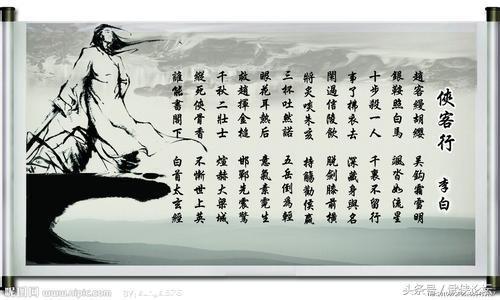 俠客行 李白
趙客縵胡纓 吳鈎霜雪明
銀鞍照白馬 颯沓如流星
十步殺一人 千裏不留行
事了拂衣去 深藏身與名
閑過信陵飲 脫劍膝前橫
將炙啖朱亥 持觴勸侯嬴
三杯吐然諾 五岳倒爲輕
眼花耳熱后 意氣素霓生
救趙揮金槌 邯鄲先震驚
千秋二壯士 煊赫大梁城
縱死俠骨香 不慚世上英
誰能書閤下 白首太玄經
昵图网 www.nipic.com
头条号